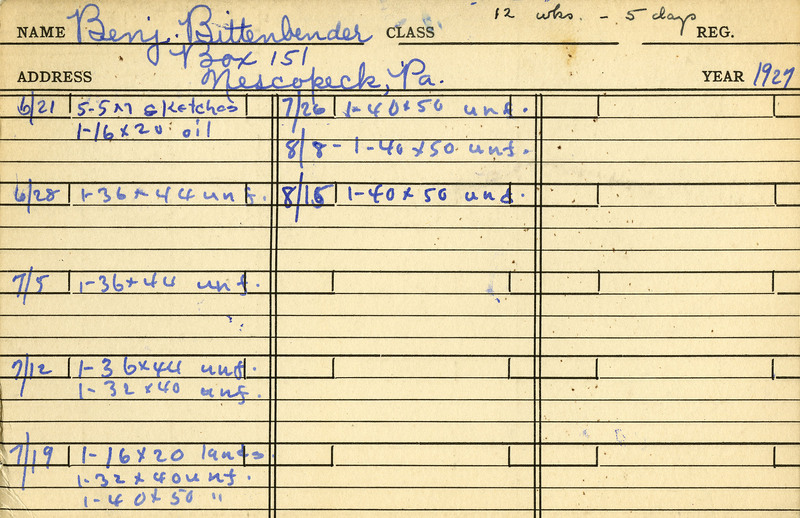 12 wks. - 5 days
NAME Benj. Bittenbender CLASS REG.
Box 151
ADDRESS Nescopeck, Pa. YEAR 1927
6/21 5-5M sketches
1-16x20 oil
6/28 1-36x44 unf.
7/5 1-36x44 unf.
7/12 1-36x44 unf.
1-32x40 unf.
7/19 1-16x20 lands.
1-32x40 unf.
1-40x50 "
7/26 1-40x50 unf.
8/8 - 1-40x50 unf.
8/15 1-40x50 unf.